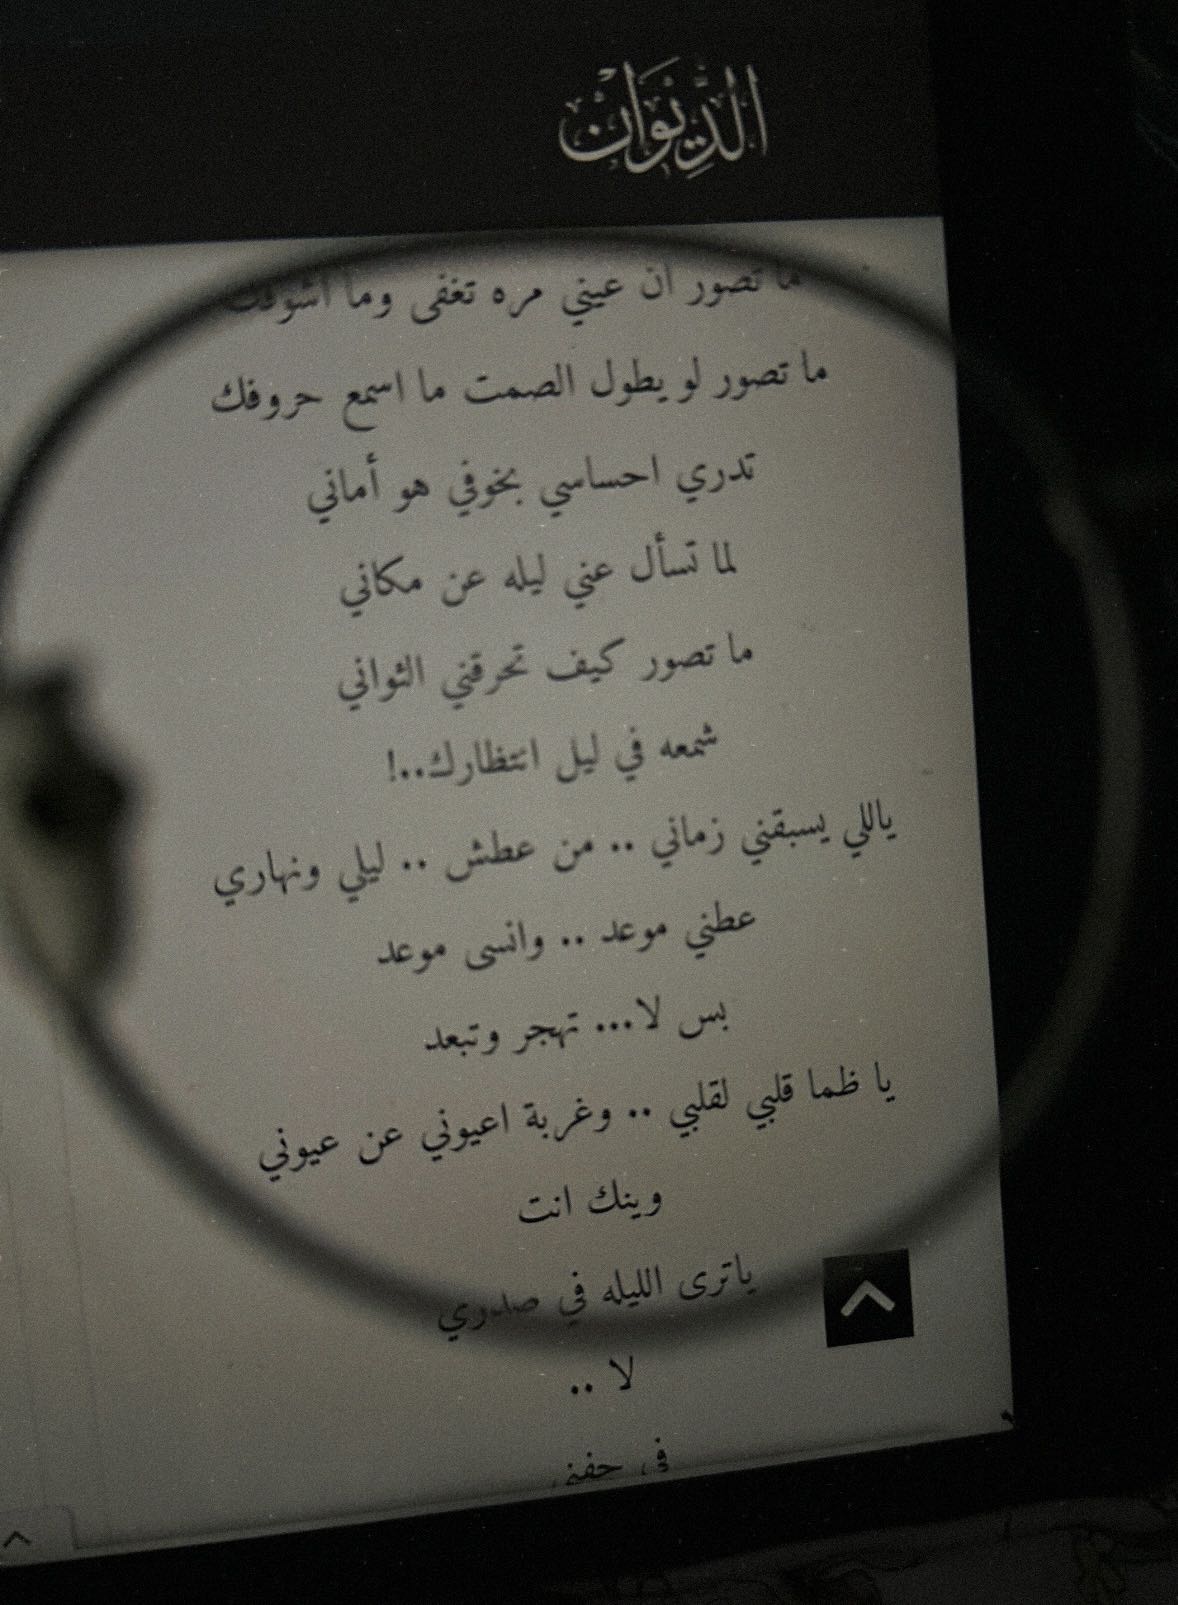 الدِّيوَان
ما تصور ان عيني مره تغفى وما اشوفك
ما تصور لو يطول الصمت ما اسمع حروفك
تدري احساسي بخوفي هو أماني
لما تسأل عني ليله عن مكاني
ما تصور كيف تحرقني الثواني
شمعه في ليل انتظارك..!
ياللي يسبقني زماني .. من عطش .. ليلي ونهاري
عطني موعد .. وانسى موعد
بس لا... تهجر وتبعد
يا ظما قلبي لقلبي .. وغربة اعيوني عن عيوني
وينك انت
ياترى الليله في صدري
لا ..
في جفني